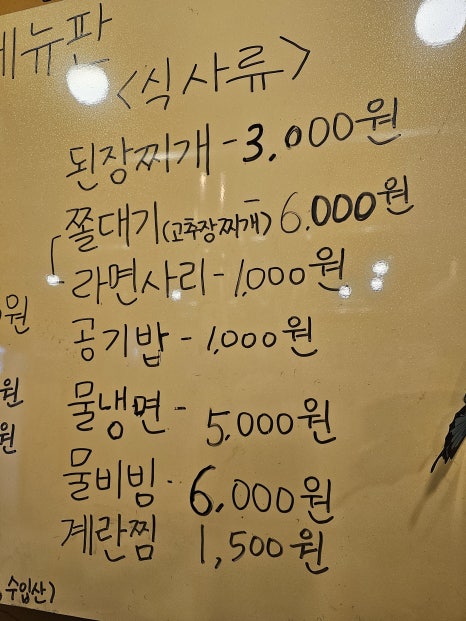 메뉴판
<식사류>
된장찌개 - 3.000원
쫄대기(고추장찌개) - 6.000원
라면사리 - 1,000원
공기밥 - 1,000원
물냉면 - 5.000원
물비빔 - 6.000원
계란찜 1,500원
원
원
원
수입산)